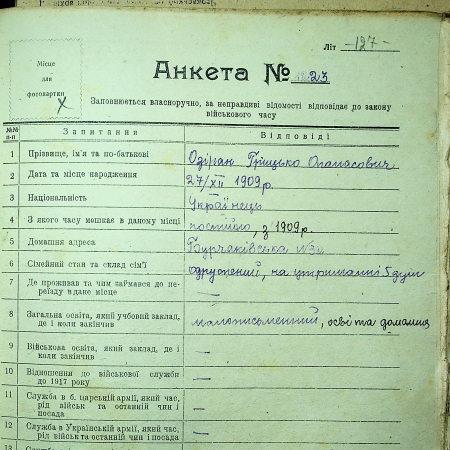 Літ —127—
Місце
для
фотокартки
Анкета № 23
Заповнюється власноручно, за неправдиві відомості відповідає до закону
військового часу
№№ п-п
Запитання
Відповіді
1 Прізвище, ім'я та по-батькові
Гріцько Опанасович
2 Дата та місце народження
27/XII 1909 р.
3 Національність
Українець
4 З якого часу мешкає в даному місці
постійно, з 1909 р.
5 Домашня адреса
Бурчаківська №
6 Сімейний стан та склад сім'ї
одружений, на утриманні 5 душ
7 Де проживав та чим займався до пе-
реїзду в дане місце
—
8 Загальна освіта, який учбовий заклад,
де і коли закінчив
малописьменний, освіта домашня
9 Військова освіта, який заклад, де і
коли закінчив
—
10 Відношення до військової служби
до 1917 року
—
11 Служба в б. царській армії, який час,
рід військ та останній чин і
посада
—
12 Служба в Українській армії, який час,
рід військ та останній чин і посада
—
13